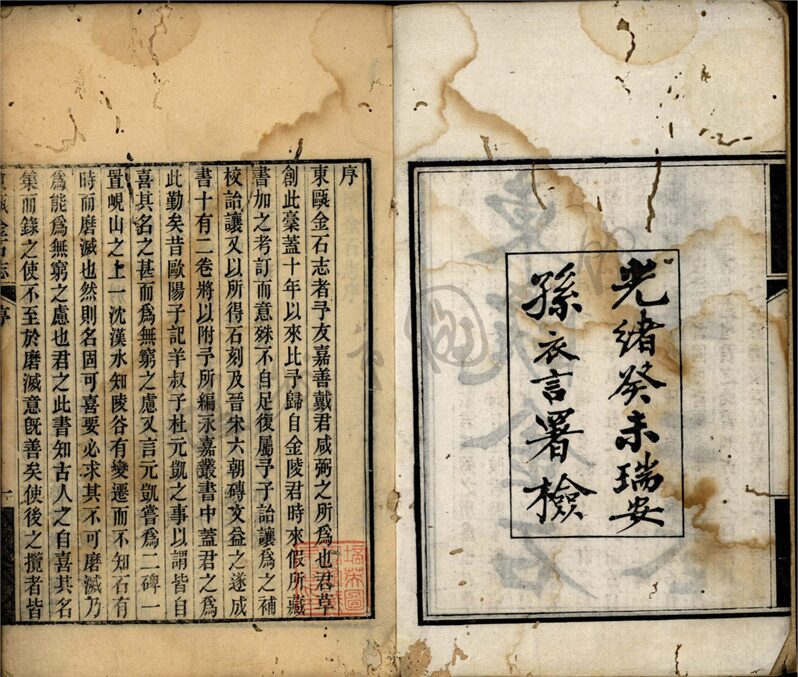 光緒癸未瑞安
孫衣言署檢
序
東甌金石志者予友嘉善戴君咸弼之所爲也君草
創此稾蓋十年以來比予歸自金陵君時來假所藏
書加之考訂而意殊不自足復屬予子詒讓爲之補
校詒讓又以所得石刻及晉宋六朝磚文益之遂成
書十有二卷將以附予所編永嘉叢書中蓋君之爲
此勤矣昔歐陽子記羊叔子杜元凱之事以謂皆自
喜其名之甚而爲無窮之慮又言元凱嘗爲二碑一
置峴山之上一沈漢水知陵谷有變遷而不知石有
時而磨滅也然則名固可喜要必求其不可磨滅乃
爲能爲無窮之慮也君之此書知古人之自喜其名
集而錄之使不至於磨滅意旣善矣使後之攬者皆
東甌金石志
序
一